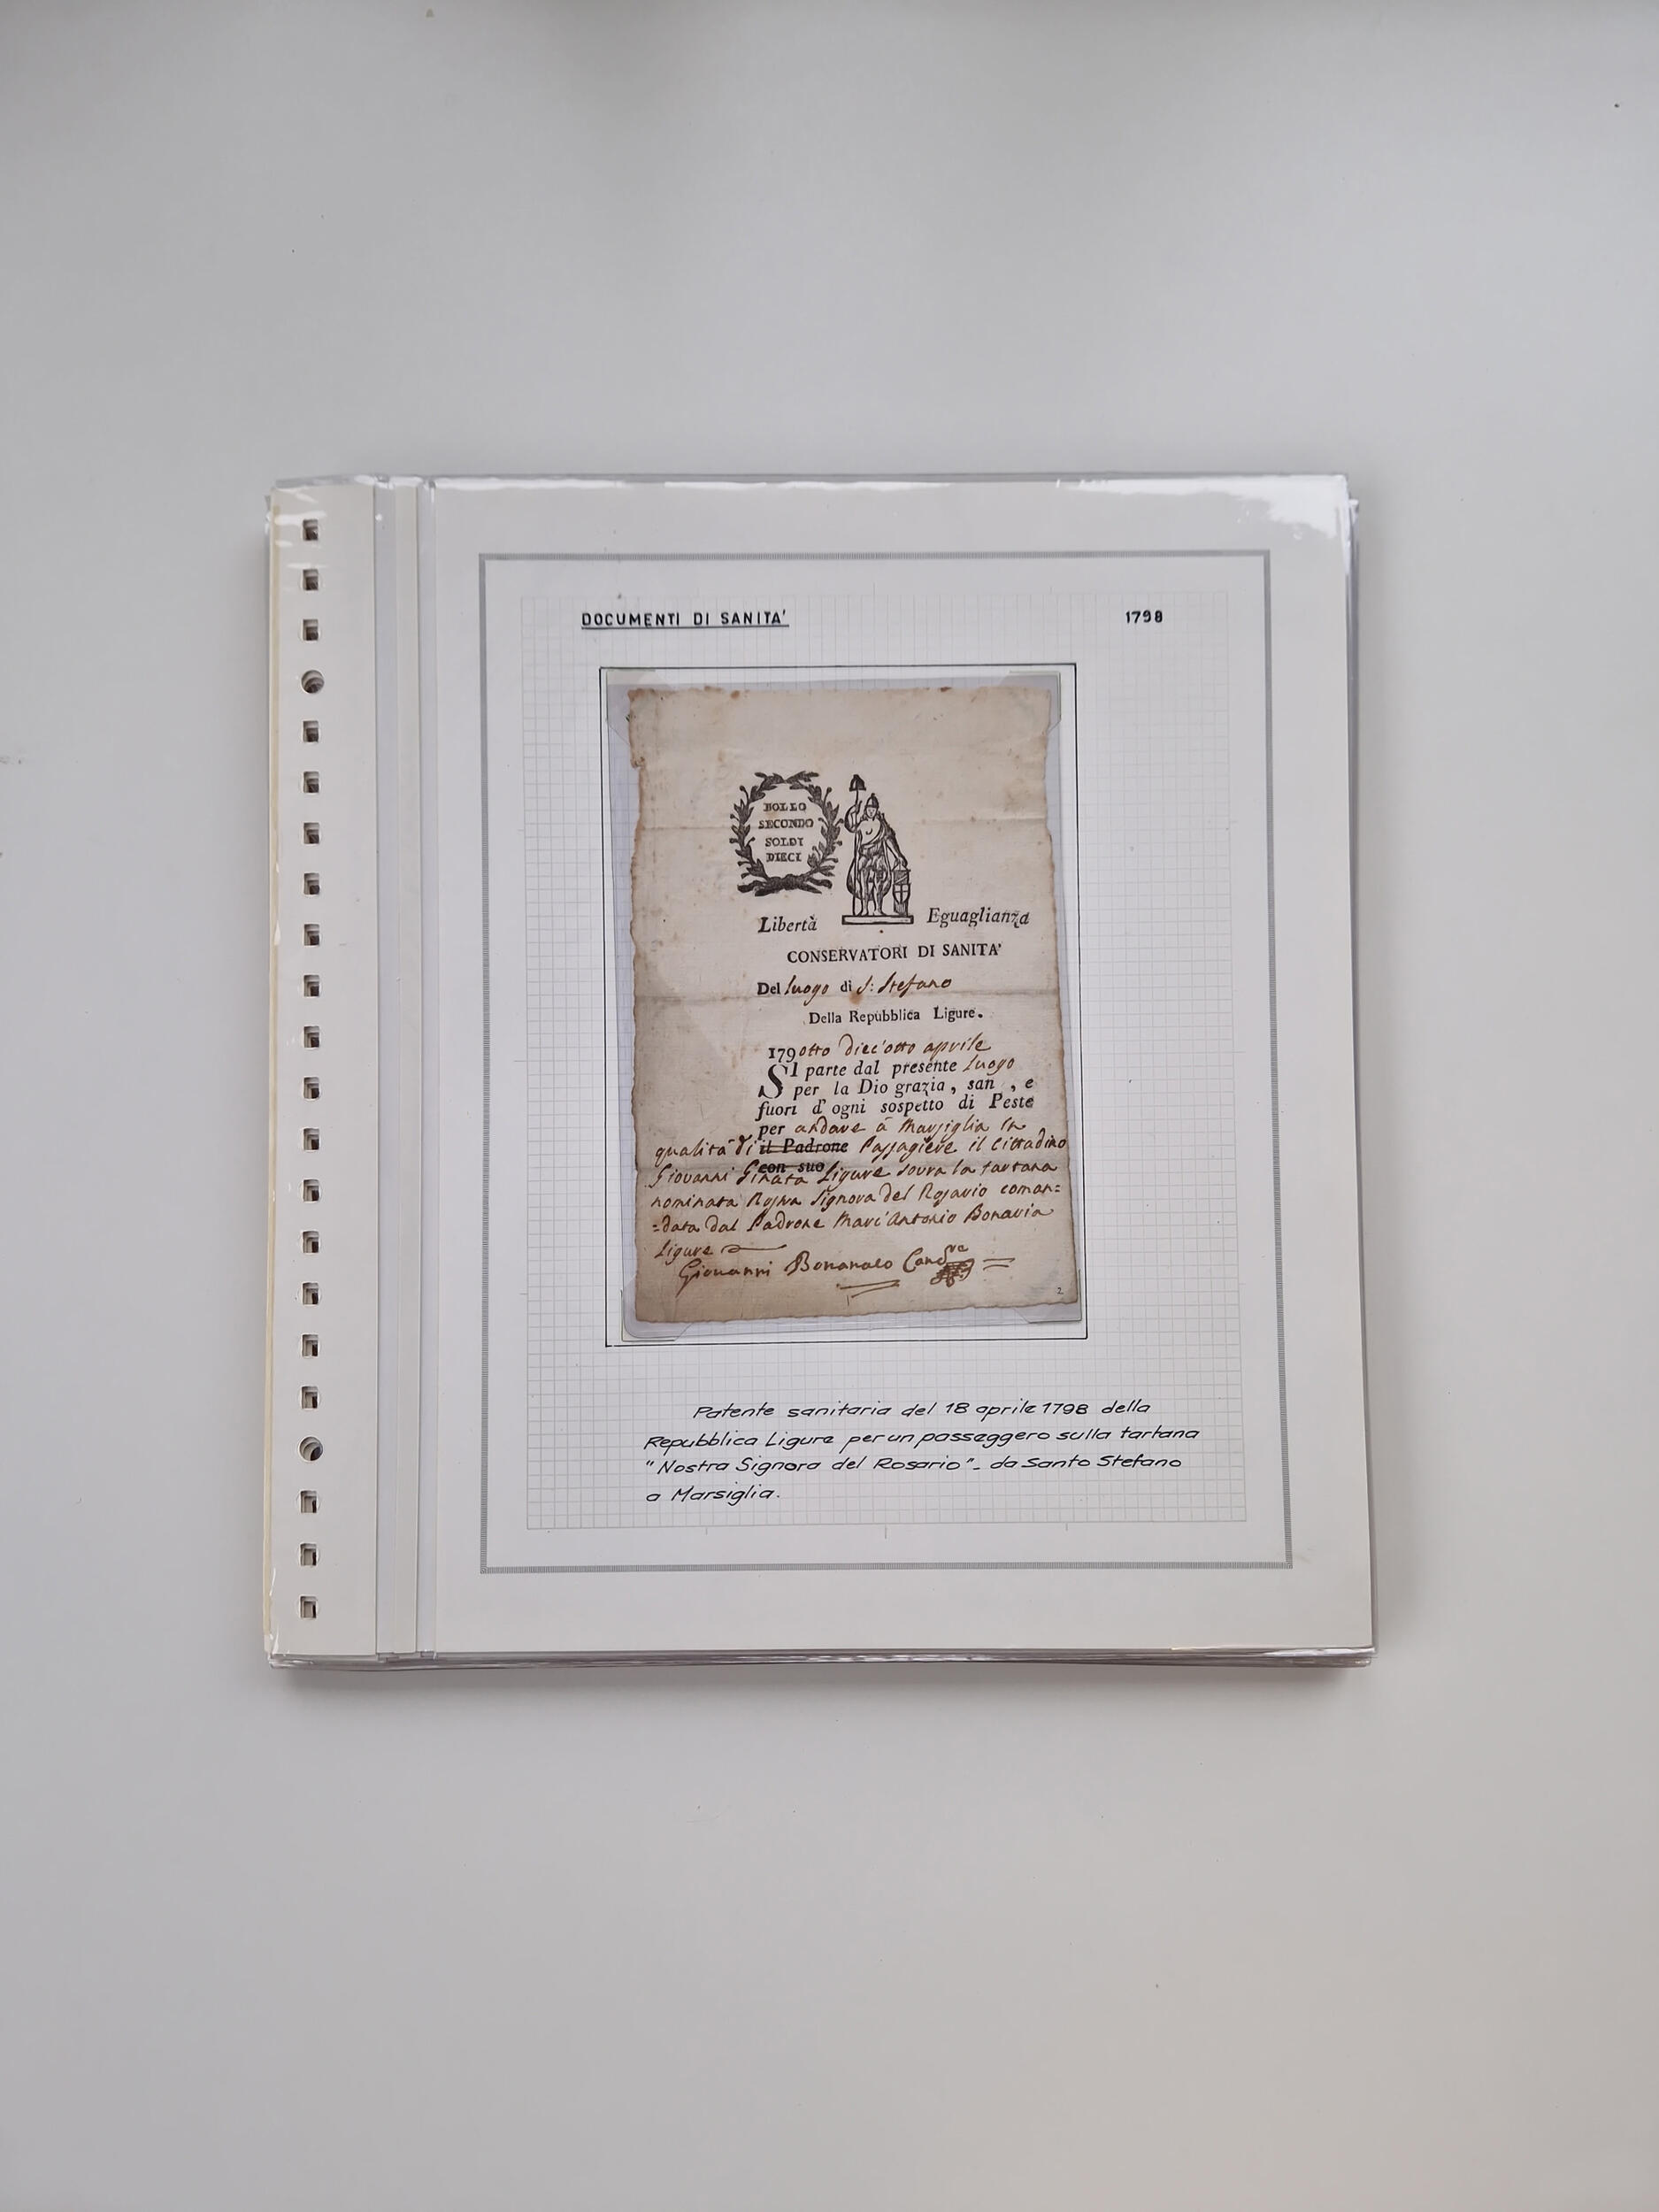 DOCUMENTI DI SANITA'
1798
BOLLO
SECONDO
SOLDI
DIECI
Libertà Eguaglianza
CONSERVATORI DI SANITA'
Del luogo di S: Stefano
Della Repubblica Ligure.
179otto diec'otto aprile
SI parte dal presente luogo
per la Dio grazia, san , e
fuori d'ogni sospetto di Peste
per andare à Marsiglia in
qualità di il Padrone Passagiere il Cittadino
con suo
Giovanni Ligure sovra la tartana
nominata Nostra Signora del Rosario coman=
=data dal Padrone Marc'Antonio Bonavia
Ligure
Giovanni
2.
Patente sanitaria del 18 aprile 1798 della
Repubblica Ligure per un passeggero sulla tartana
"Nostra Signora del Rosario"- da Santo Stefano
a Marsiglia.